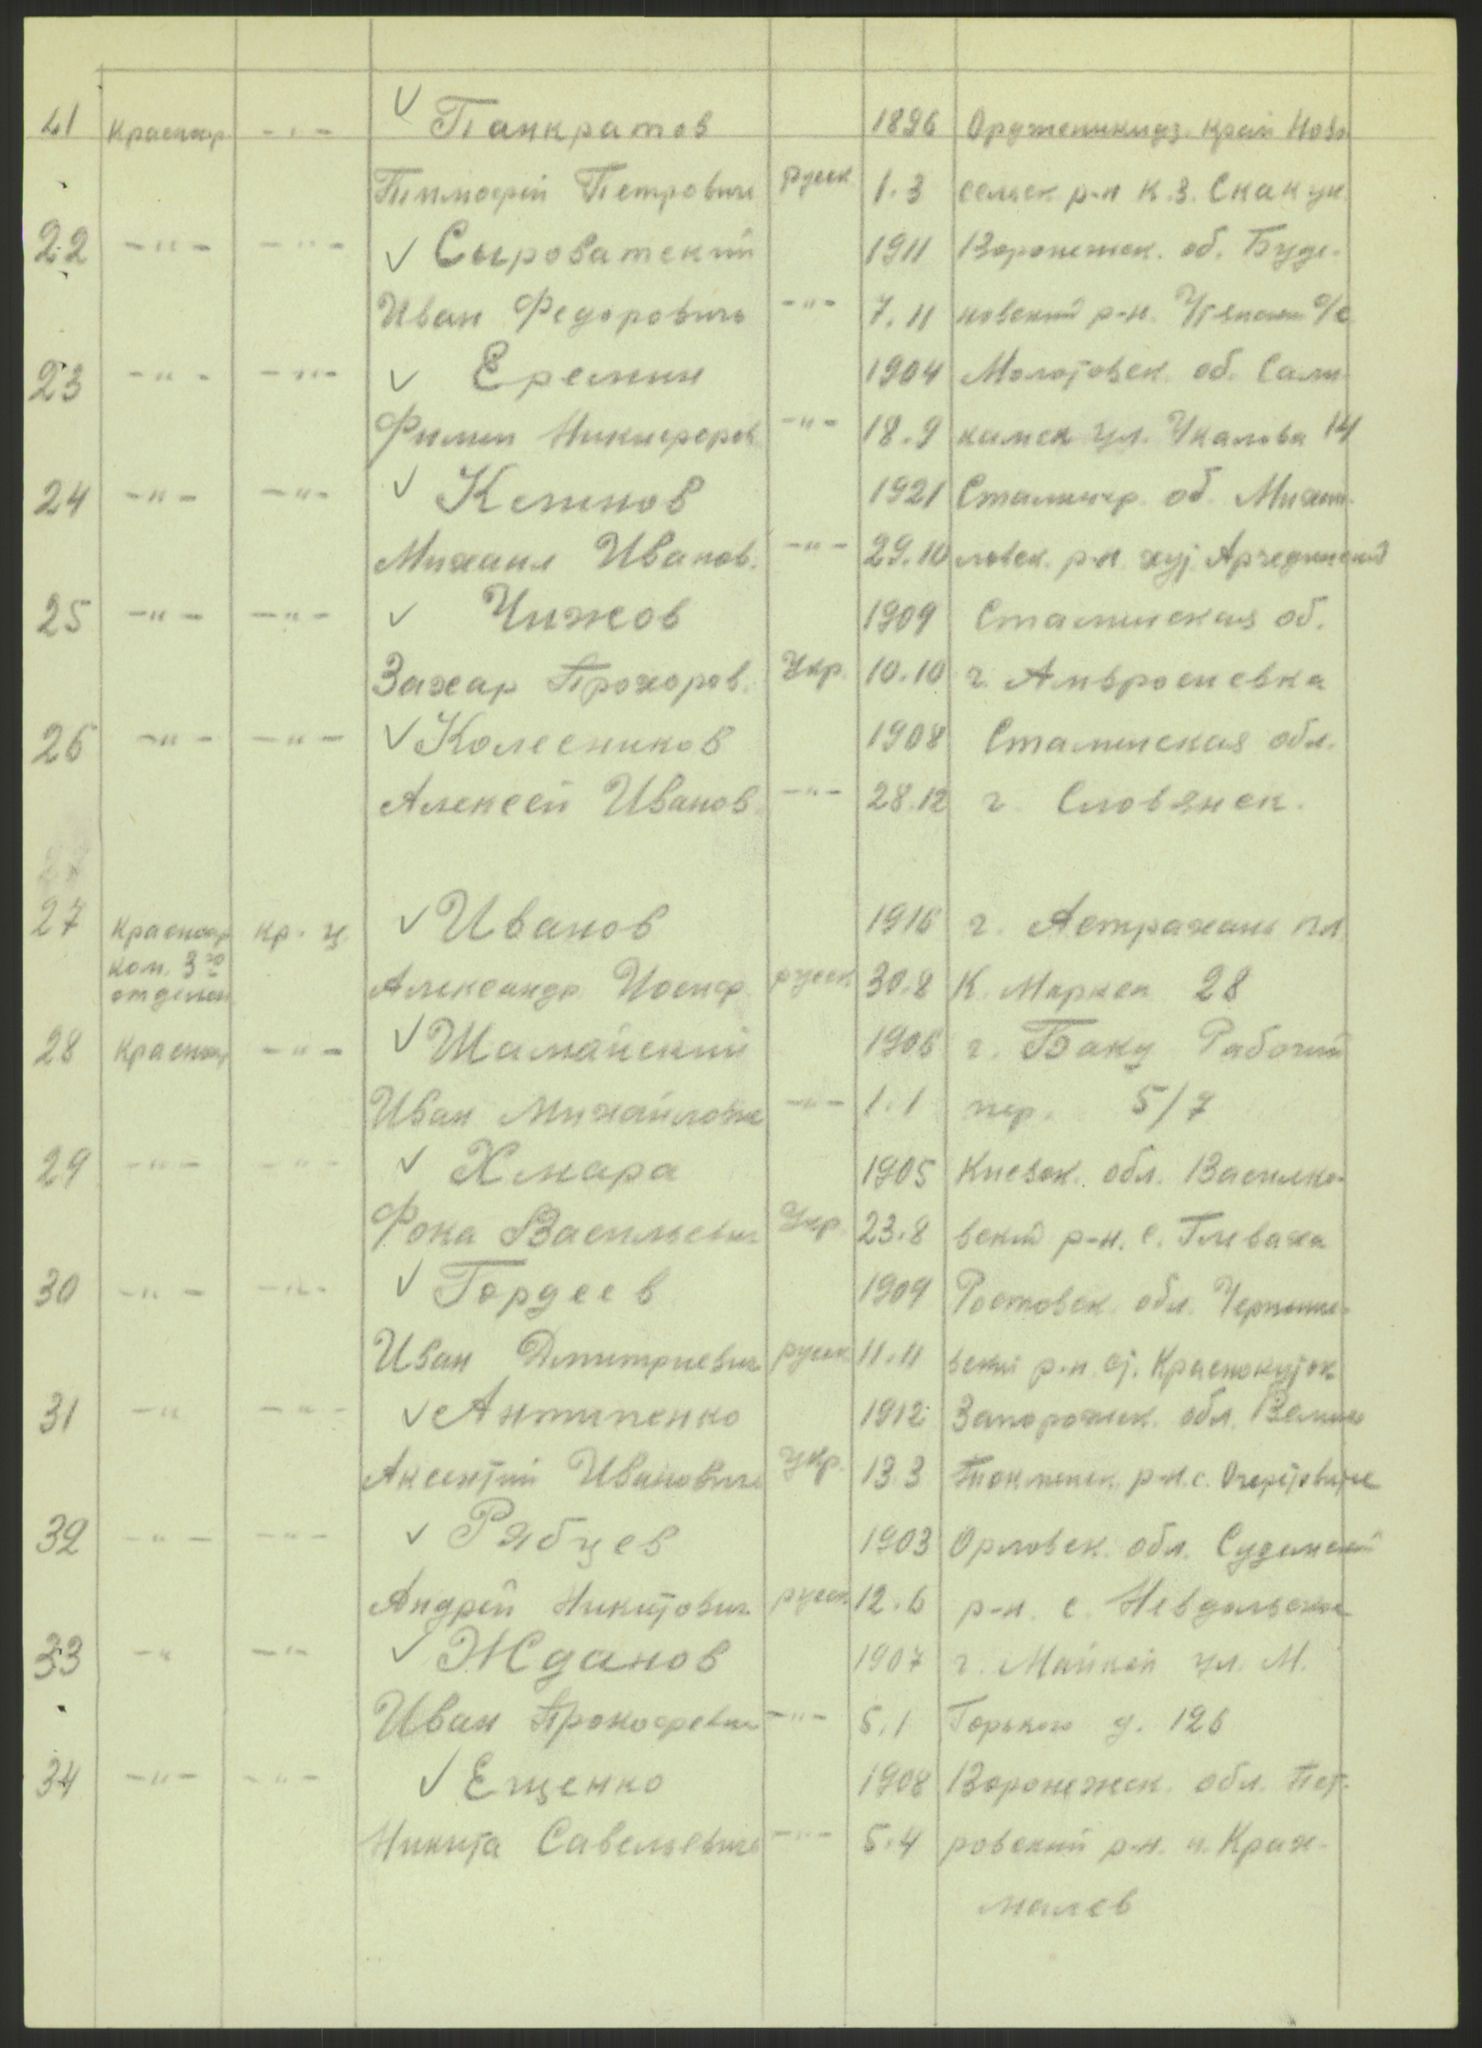 21 Красноар -"- ✓ Панкратов 1896 Орджоникидз. край Ново
Тимофей Петрович русск 1.3 сельск р-н к.з. Скакун
22 -"- -"- ✓ Сыроватский 1911 Воронежск. об. Буде-
Иван Федорович -"- 7.11 новский р-н.
23 -"- -"- ✓ Еремин 1904 Молотовск. об. Сали
Филип Никифоров -"- 18.9 камск ул. Чкалова 14
24 -"- -"- ✓ 1921 Сталингр. об. Михай-
Михаил Иванов. -"- 29.10 ловск. р-н хут Арчединский
25 -"- -"- ✓ Чижов 1909 Сталинская об.
Захар Прохоров. Укр. 10.10 г. Амвросиевка
26 -"- -"- ✓ Колесников 1908 Сталинская обл.
Алексей Иванов -"- 28.12 г. Словянск.
27 Красноар кр-ц ✓ Иванов 1916 г. Астрахань пл
ком. 3го отделен Александр Иосиф русск 30.8 К. Маркса 28
28 Красноар -"- ✓ Шаманский 1906 г. Баку Рабочий
Иван Михайлович -"- 1.1 пер. 5/7
29 -"- -"- ✓ Хмара 1905 Киевск. обл. Василко-
Фока Васильевич Укр. 23.8 вский р-н. с. Глеваха
30 -"- -"- ✓ Гордеев 1909 Ростовск. обл. Черныше-
Иван Дмитриевич русск 11.11 вский р-н. ст. Краснокутск
31 -"- -"- ✓ Антипенко 1912 Запорожск. обл. Велико
Аксентий Иванович Укр. 13.3 Токмакск р-н. с. Очеретоватое
32 -"- -"- ✓ Рябцев 1903 Орловск. обл. Суземский
Андрей Никитович русск 12.6 р-н. с. Невдольское
33 -"- -"- ✓ Жданов 1907 г. Майкоп ул. М.
Иван Прокофевич -"- 5.1 Горького д. 126
34 -"- -"- ✓ Ещенко 1908 Воронежск. обл. Пет-
Никита Савельевич -"- 5.4 ровский р-н. Крах-
малев